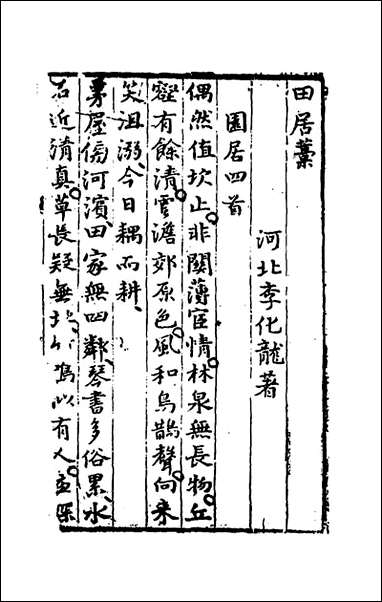 田居藳
河北李化龍著
園居四首
偶然值坎止非關薄宦情林泉無長物丘
壑有餘清雲澹郊原色風和鳥鵲聲向来
笑沮溺今日耦而耕
茅屋傍河濱田家無四鄰琴書多俗累水
石近淸真草長疑無 鳴似有人